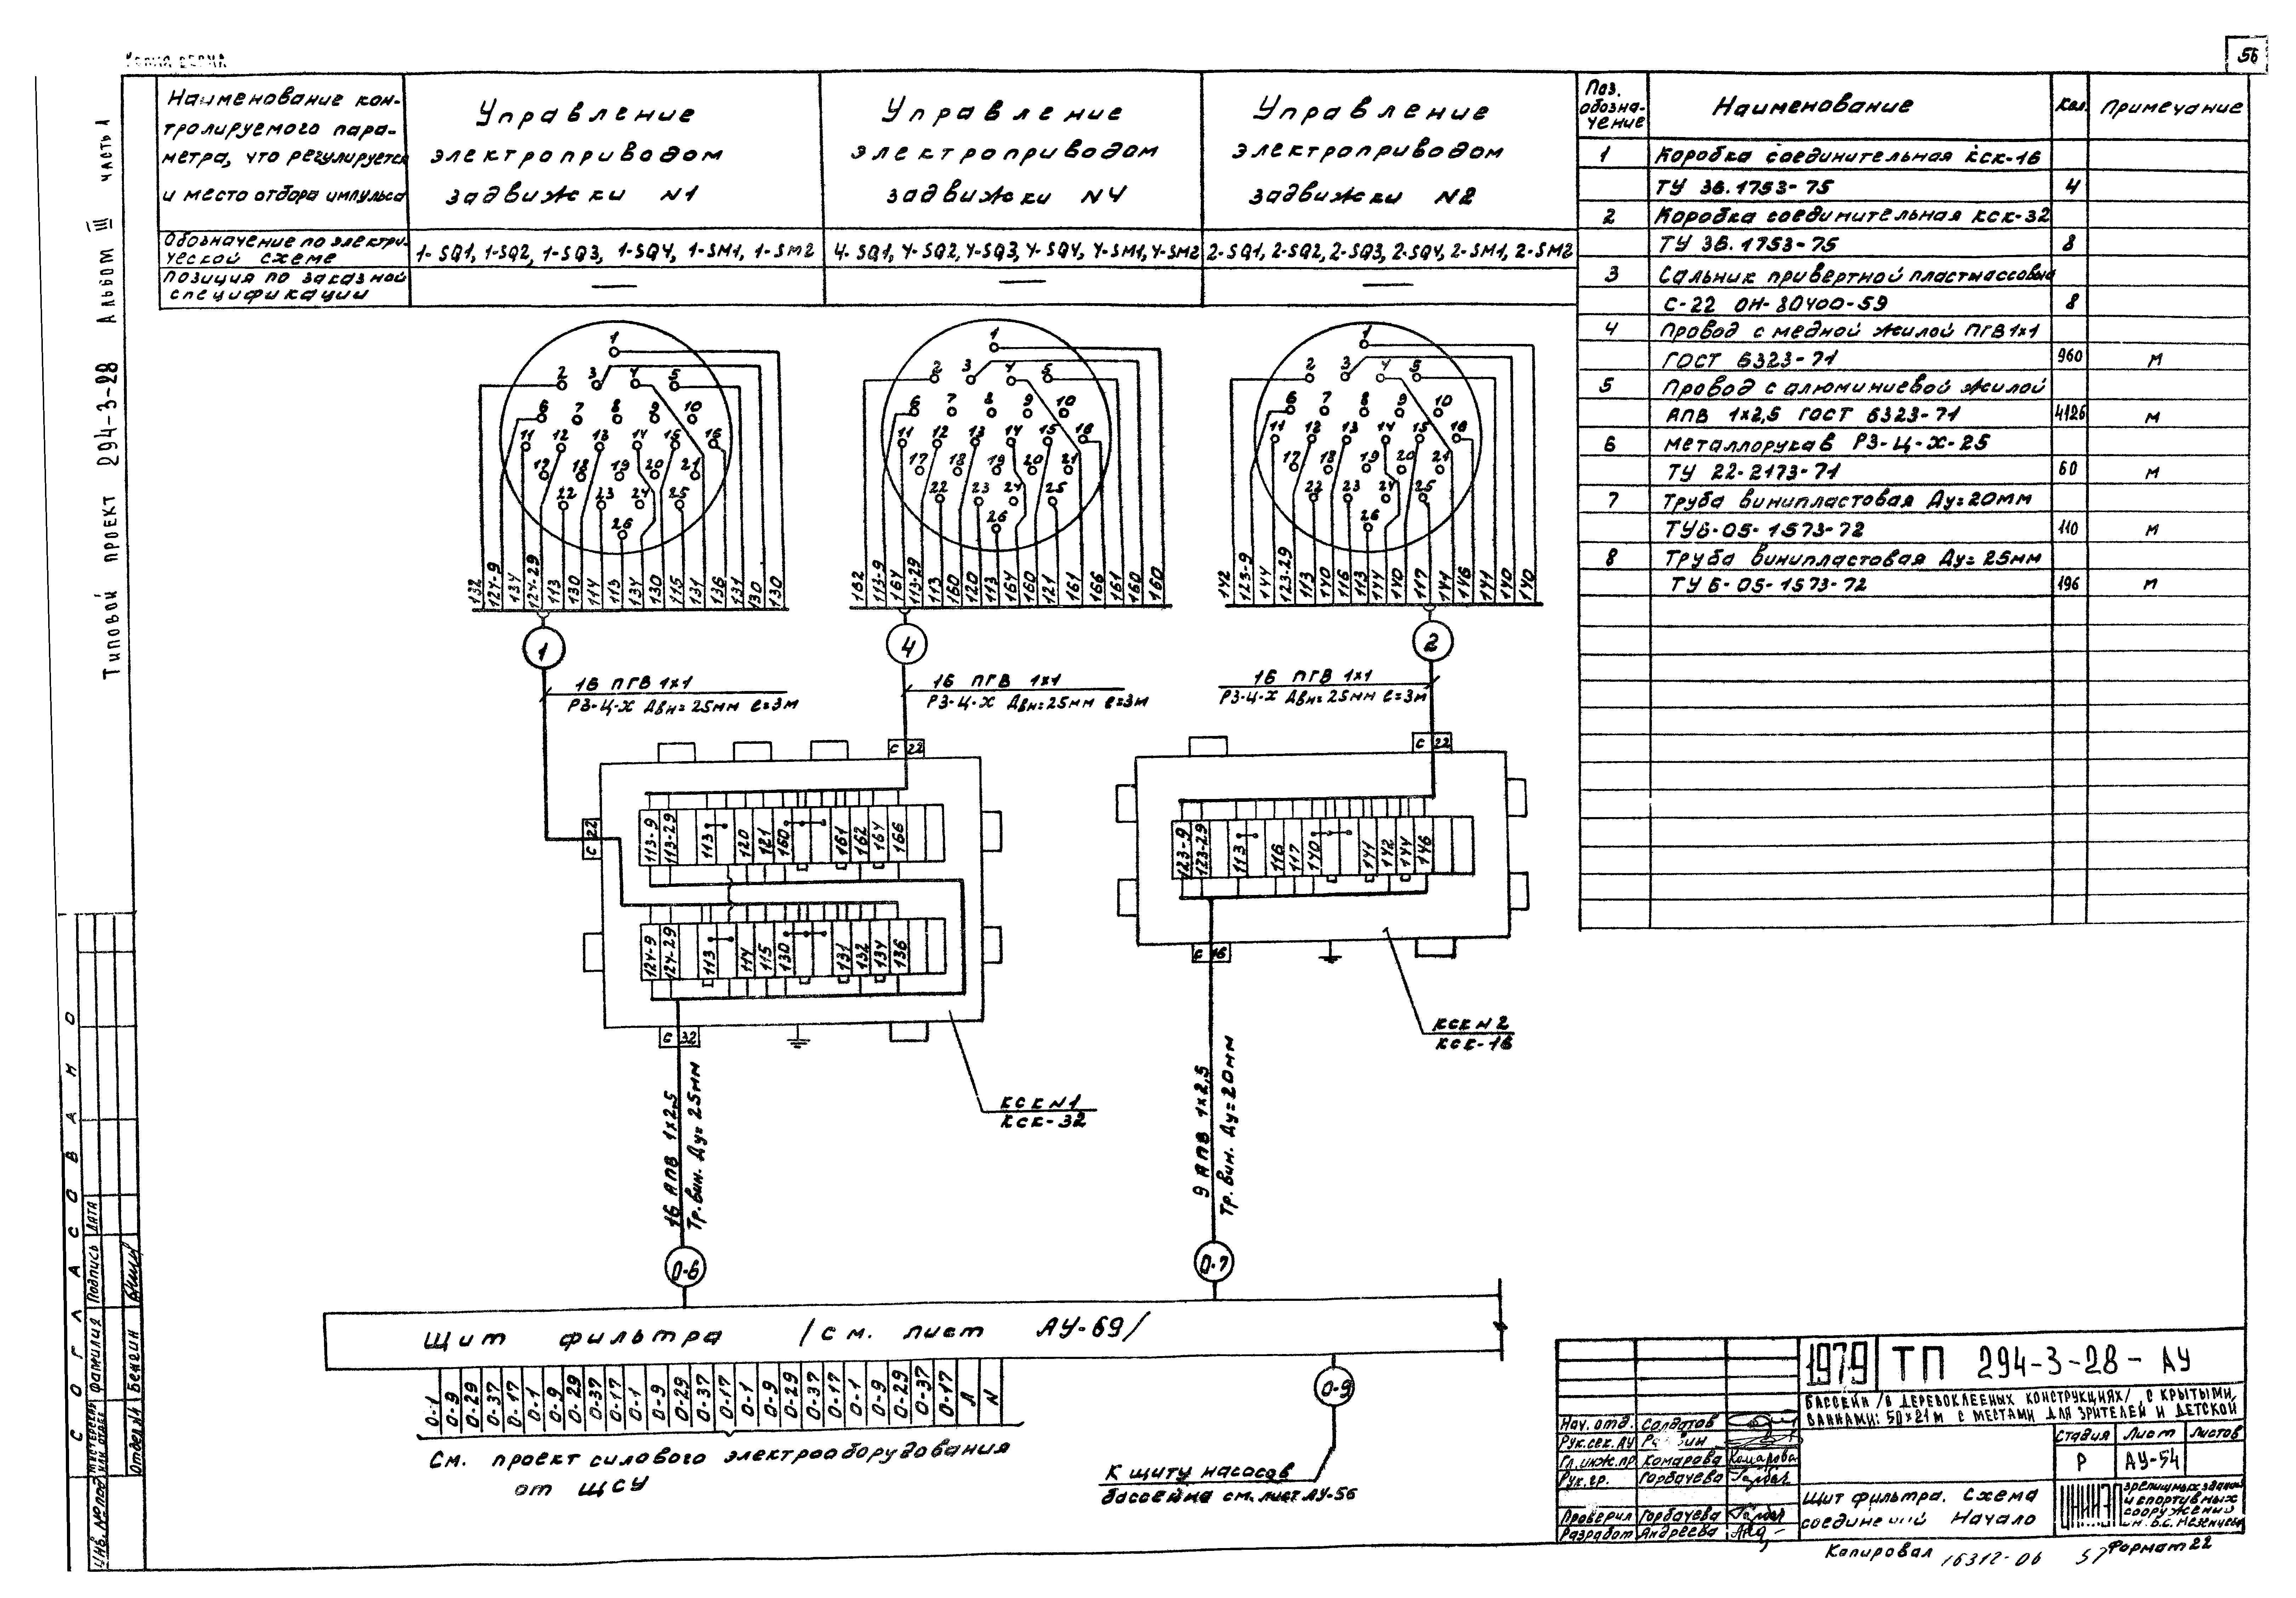 56
Типовой проект 294-3-28 Альбом III часть 1
Наименование кон-
тролируемого пара-
метра, что регулируется
и место отбора импульса
Управление
электроприводом
задвижки N1
Управление
электроприводом
задвижки N4
Управление
электроприводом
задвижки N2
Обозначение по электри-
ческой схеме
1-SQ1, 1-SQ2, 1-SQ3, 1-SQ4, 1-SM1, 1-SM2
4-SQ1, 4-SQ2, 4-SQ3, 4-SQ4, 4-SM1, 4-SM2
2-SQ1, 2-SQ2, 2-SQ3, 2-SQ4, 2-SM1, 2-SM2
Позиция по заказной
спецификации
— — —
Поз. обозна-чение Наименование Кол. Примечание
1 Коробка соединительная КСК-16
ТУ 36.1753-75 4
2 Коробка соединительная КСК-32
ТУ 36.1753-75 8
3 Сальник привертной пластмассовый
С-22 ОН-80400-59 8
4 Провод с медной жилой ПГВ 1х1
ГОСТ 6323-71 960 м
5 Провод с алюминиевой жилой
АПВ 1х2,5 ГОСТ 6323-71 4126 м
6 Металлорукав РЗ-Ц-Х-25
ТУ 22-2173-71 60 м
7 Труба винипластовая Ду=20мм
ТУ6-05-1573-72 110 м
8 Труба винипластовая Ду=25мм
ТУ6-05-1573-72 196 м
1
2 3 4 5
6 7 8 9 10
11 12 13 14 15 16
17 18 19 20 21
22 23 24 25
26
132 124-9 134 124-29 113 130 114 113 134 130 115 131 136 131 130 130
1
2 3 4 5
6 7 8 9 10
11 12 13 14 15 16
17 18 19 20 21
22 23 24 25
26
162 113-9 164 113-29 113 160 120 113 164 160 121 161 166 161 160 160
1
2 3 4 5
6 7 8 9 10
11 12 13 14 15 16
17 18 19 20 21
22 23 24 25
26
142 123-9 144 123-29 113 140 116 113 144 140 117 141 146 141 140 140
1 4 2
16 ПГВ 1х1
РЗ-Ц-Х Двн=25мм ℓ=3м
16 ПГВ 1х1
РЗ-Ц-Х Двн=25мм ℓ=3м
16 ПГВ 1х1
РЗ-Ц-Х Двн=25мм ℓ=3м
С 22
С 22
С 22
113-9 113-29 113 120 121 160 161 162 164 166
123-9 123-29 113 116 117 140 141 142 144 146
124-9 124-29 113 114 115 130 131 132 134 136
С 32
С 16
КСК N1
КСК-32
КСК N2
КСК-16
16 АПВ 1х2,5
Тр. вин. Ду=25мм
9 АПВ 1х2,5
Тр. вин. Ду=20мм
0-6
0-7
Щит фильтра /см. лист АУ-69/
0-1 0-9 0-29 0-37 0-17 0-1 0-9 0-29 0-37 0-17 0-1 0-9 0-29 0-37 0-17 0-1 0-9 0-29 0-37 0-17 0-1 0-9 0-29 0-37 0-17 А N
См. проект силового электрооборудования
от ЩСУ
0-9
К щиту насосов
бассейна см. лист АУ-56
СОГЛАСОВАНО
Мастерская или отдел Фамилия Подпись Дата
Бенгин
Инв. № под
1979 ТП 294-3-28-АУ
Бассейн /в деревоклееных конструкциях/ с крытыми
ваннами: 50х21м с местами для зрителей и детской
Нач. отд. Солдатов
Рук. сек. АУ
Гл. инж. пр Комарова Комарова
Рук. гр. Горбачева
Проверил Горбачева
Разработ Андреева
Стадия Лист Листов
Р АУ-54
Щит фильтра. Схема
соединений Начало
зрелищных зданий
и спортивных
сооружений
им. Б.С. Мезенцева
Копировал 16312-06 57 Формат 22